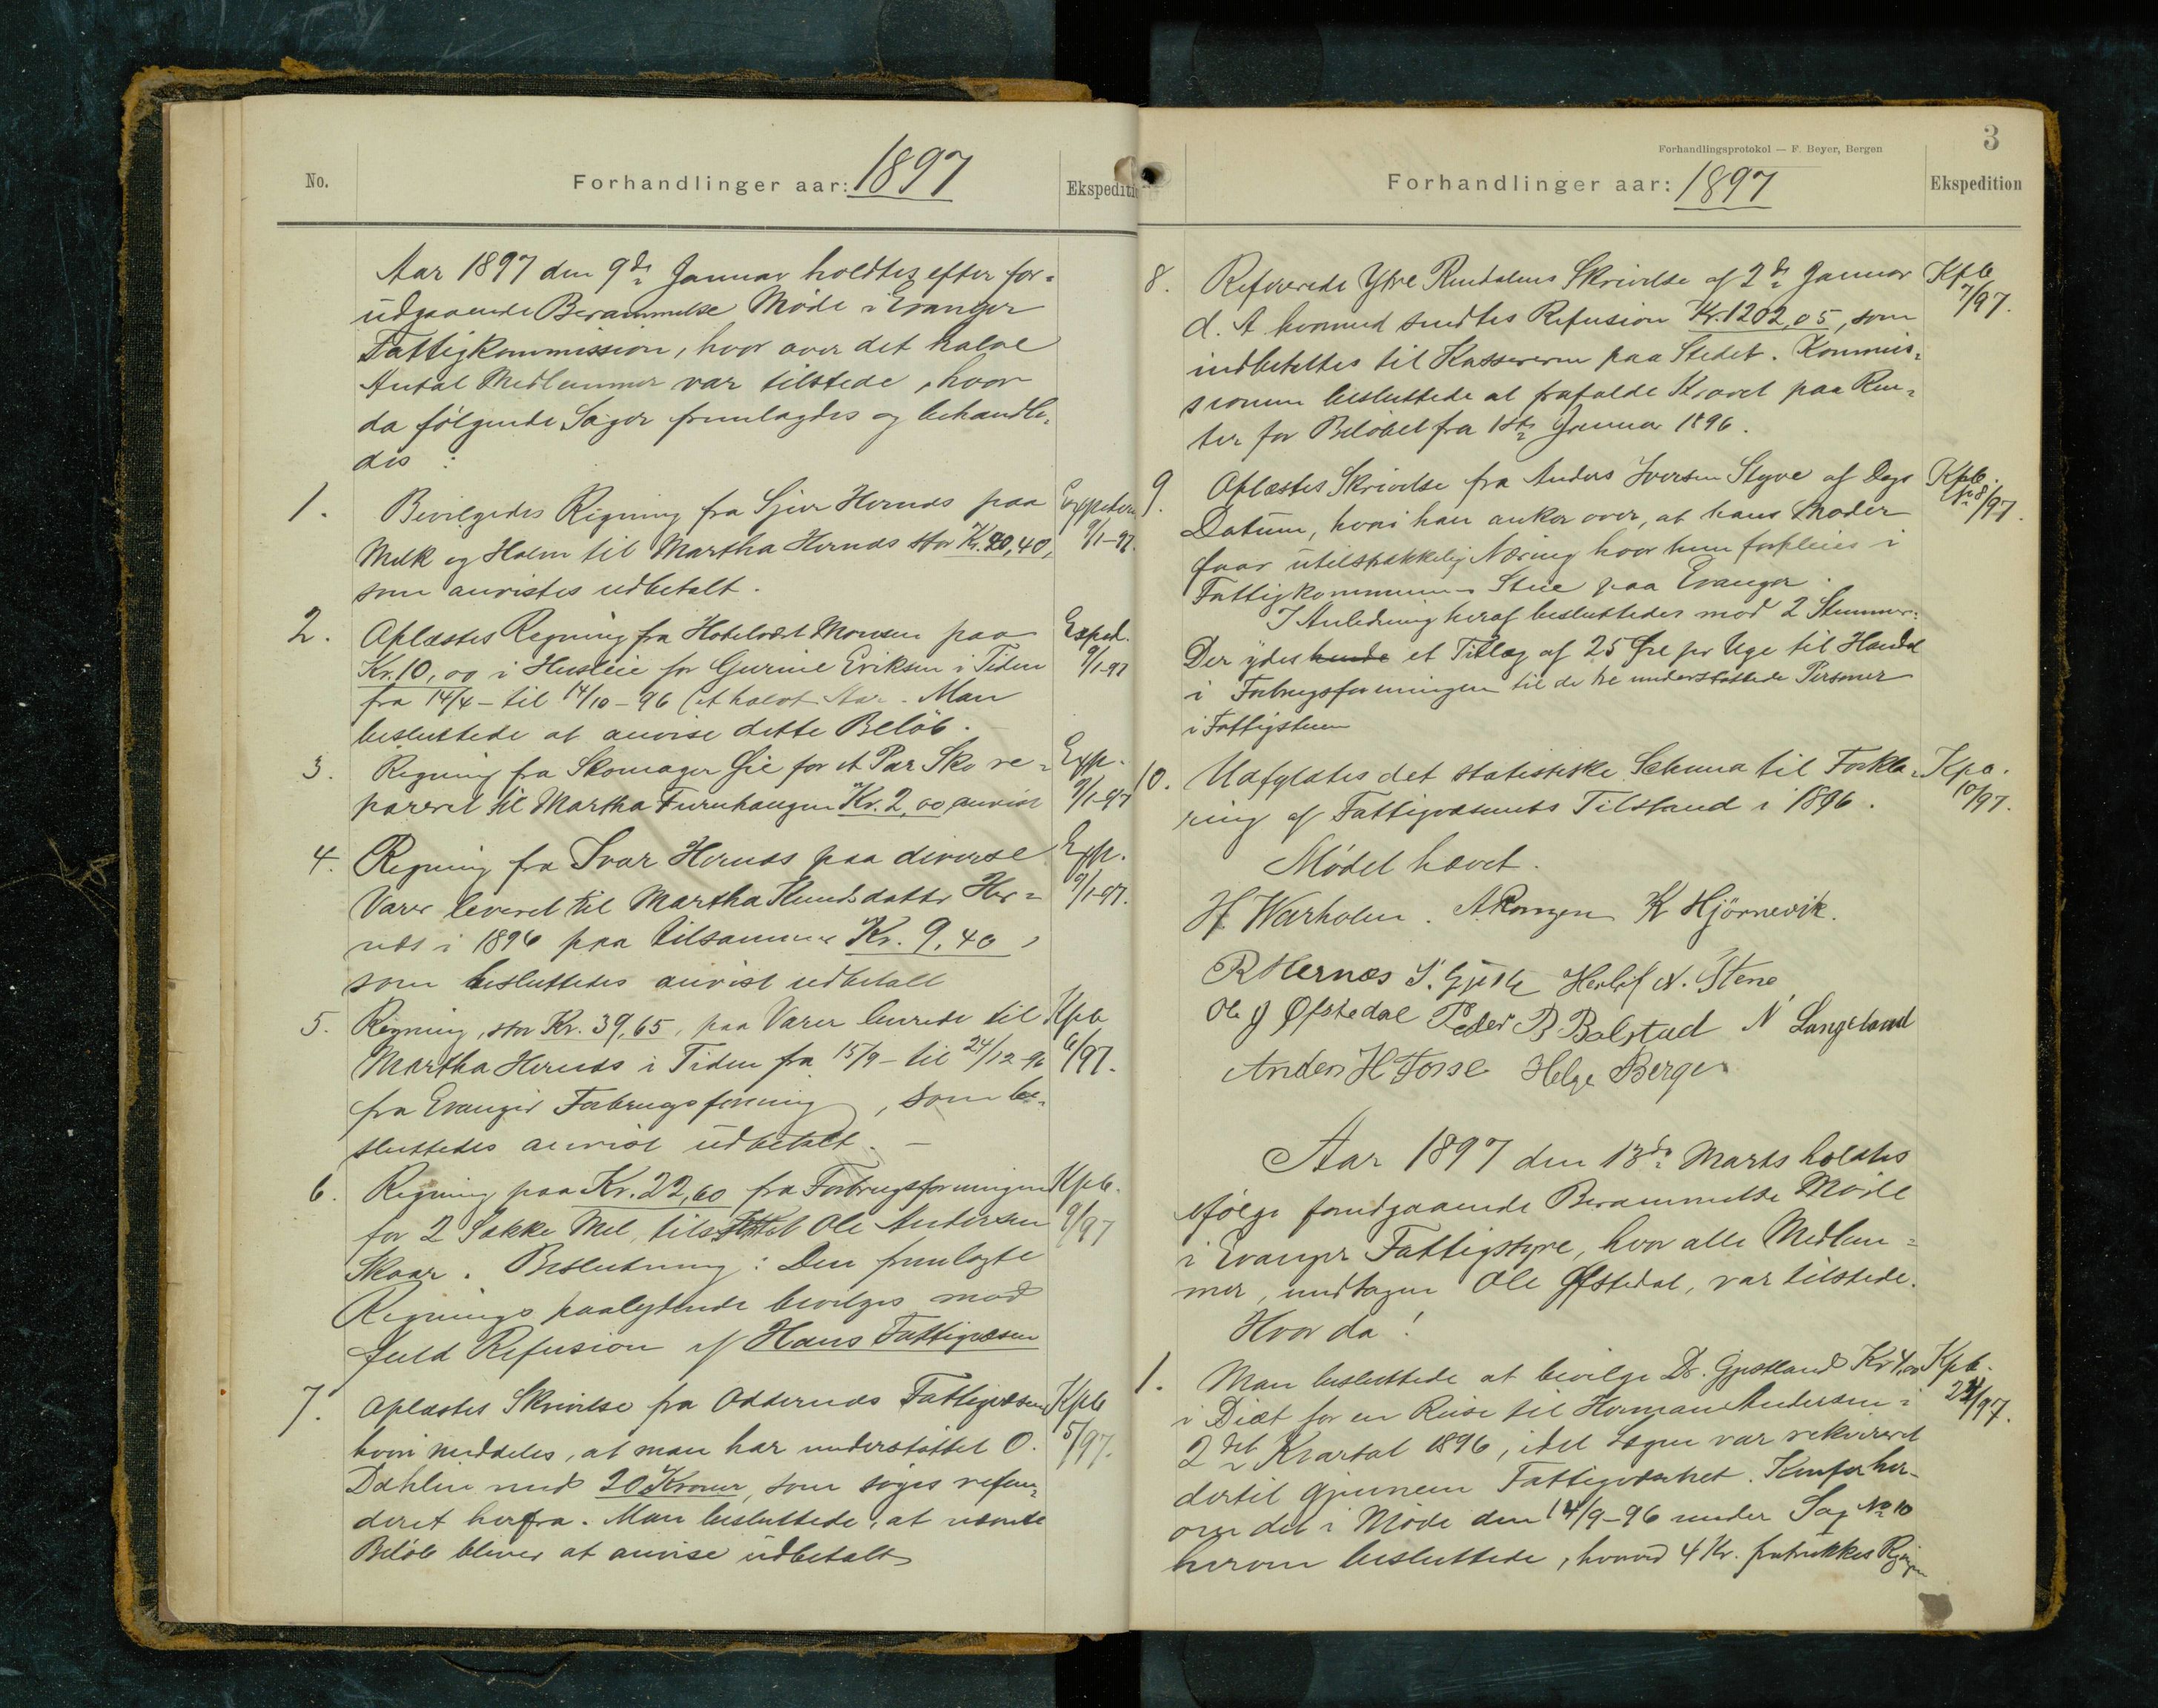 No.
Forhandlinger aar: 1897
Ekspediti
Aar 1897 den 9de Januar holdtes efter for-
udgaaende Berammelse Møde i Evanger
Fattigkommission, hvor over det halve
Antal Medlemmer var tilstede, hvor
da følgende Sager fremlagdes og behandle-
des :
1. Bevilgedes Regning fra Sjur Hernæs paa
Melk og Halm til Martha Hernæs stor Kr. 20,40,
som anvistes udbetalt.
9/1-97.
2. Oplæstes Regning fra Hotelvært Monsen paa
Exped.
Kr. 10,00 i Husleie for Gurine Eriksen i Tiden
9/1-97
fra 14/4 - til 14/10 - 96 (et halvt Aar. Man
besluttede at anvise dette Beløb.
3. Regning fra Skomager Gie for et Par Sko re-
Exp.
pareret til Martha Furuhaugen Kr. 2,00 anvist
9/1-97
4. Regning fra Ivar Hernæs paa diverse
Exp.
Varer leveret til Martha Knudsdatter Her-
9/1-97.
næs i 1896 paa tilsammen Kr. 9,40,
som besluttedes anvist udbetalt
5. Regning, stor Kr. 39,65, paa Varer leverede til
Kpb
Martha Hernæs i Tiden fra 15/9 - til 24/12-96
6/97.
fra Evanger Forbrugsforening, som be-
sluttedes anvist udbetalt. -
6. Regning paa Kr. 22,60 fra Forbrugsforeningen
Kpb.
for 2 Sække Mel, tilstillet Ole Andersen
9/97
Skaar. Beslutning: Den fremlagte
Regnings paalydende bevilges mod
fuld Refusion af Haus Fattigvæsen
7. Oplæstes Skrivelse fra Oddernæs Fattigvæsen
Kpb
hvori meddeles, at man har understøttet O.
5/97.
Dahlen med 20 Kroner, som søges refun-
deret herfra. Man besluttede, at nævnte
Beløb bliver at anvise udbetalt
3
Forhandlingsprotokol — F. Beyer, Bergen
Forhandlinger aar: 1897
Ekspedition
8. Refererede Ytre Rendalens Skrivelse af 2de Januar
Kpb
d. A. hvormed sendtes Refusion Kr. 1202,05, som
7/97.
indbetaltes til Kassereren paa Stedet. Kommis-
sionen besluttede at frafalde Kravet paa Ren-
ter for Beløbet fra 1ste Januar 1896.
9. Oplæstes Skrivelse fra Anders Iversen Styve af Dags
Kpb.
Datum, hvori han anker over, at hans Moder
8/97.
faar utilstrækkelig Næring hvor hun forpleies i
Fattigkommunens Stue paa Evanger.
I Anledning heraf besluttedes mod 2 Stemmer:
Der ydes hende et Tillæg af 25 Øre pr Uge til Handel
i Forbrugsforeningen til de tre understøttede Personer
i Fattigstuen
10. Udfyldtes det statistiske Schema til Forkla-
Kpo.
ring af Fattigvæsenets Tilstand i 1896.
10/97.
Mødet hævet.
H. Warholm. A Rongen K Hjørnevik.
R Hernæs S. Gjelle Herlof N. Stene
Ole J Øfstedal Peder B Bolstad N Langeland
Anders H Fosse Helge Berge
Aar 1897 den 13de Marts holdtes
ifølge forudgaaende Berammelse Møde
i Evanger Fattigstyre, hvor alle Medlem-
mer, undtagen Ole Øfstedal, var tilstede.
Hvor da!
1. Man besluttede at bevilge Dr. Gjestland Kr 4,00
Kpb.
i Diæt for en Reise til Herman Andersen i
24/97.
2det Kvartal 1896, idet Lægen var rekvireret
dertil gjennem Fattigvæsenet. Kenfor her-
over det i Møde den 14/9-96 under Sag No 10
herom besluttede, hvorved 4 Kr. fratrukkes Regningen